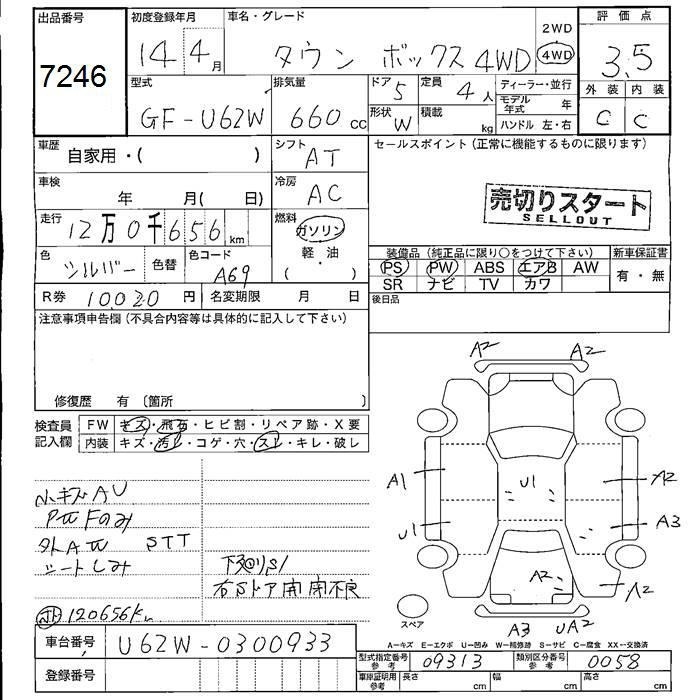 出品番号
7246
初度登録年月
14 4月
車名・グレード
タウン ボックス 4WD
2WD
4WD
評価点
3.5
外装 内装
C C
型式
GF-U62W
排気量
660 cc
ドア 5
形状 W
定員 4人
積載 kg
ディーラー・並行
モデル年式 年
ハンドル 左・右
車歴
自家用・( )
シフト
AT
セールスポイント (正常に機能するものに限ります)
売切りスタート
SELLOUT
車検
年 月( 日)
冷房
AC
走行
12万0千656km
燃料
ガソリン
軽・油
( )
色
シルバー
色替
色コード
A69
装備品 (純正品に限り○をつけて下さい)
PS PW ABS エアB AW
SR ナビ TV カワ
新車保証書
有・無
R券 10020円
名変期限 月 日
後日品
注意事項申告欄 (不具合内容等は具体的に記入して下さい)
修復歴 有 〔箇所 〕
検査員記入欄
FW キズ・飛石・ヒビ割・リペア跡・X要
内装 キズ・汚レ・コゲ・穴・スレ・キレ・破レ
小キズAU
PW Fのみ
外AW STT
シートしみ
下廻りS1
右Sドア開閉不良
120656km
A2 A2
A1
U1
U1
A2
A3
A2
A2
A3 UA2
スペア
A=キズ E=エクボ U=凹み W=補修跡 S=サビ C=腐食 XX=交換済
車台番号 U62W-0300933
登録番号
型式指定番号 参考 09313
類別区分番号 参考 0058
車庫証明用 参考 長さ cm 幅 cm 高さ cm